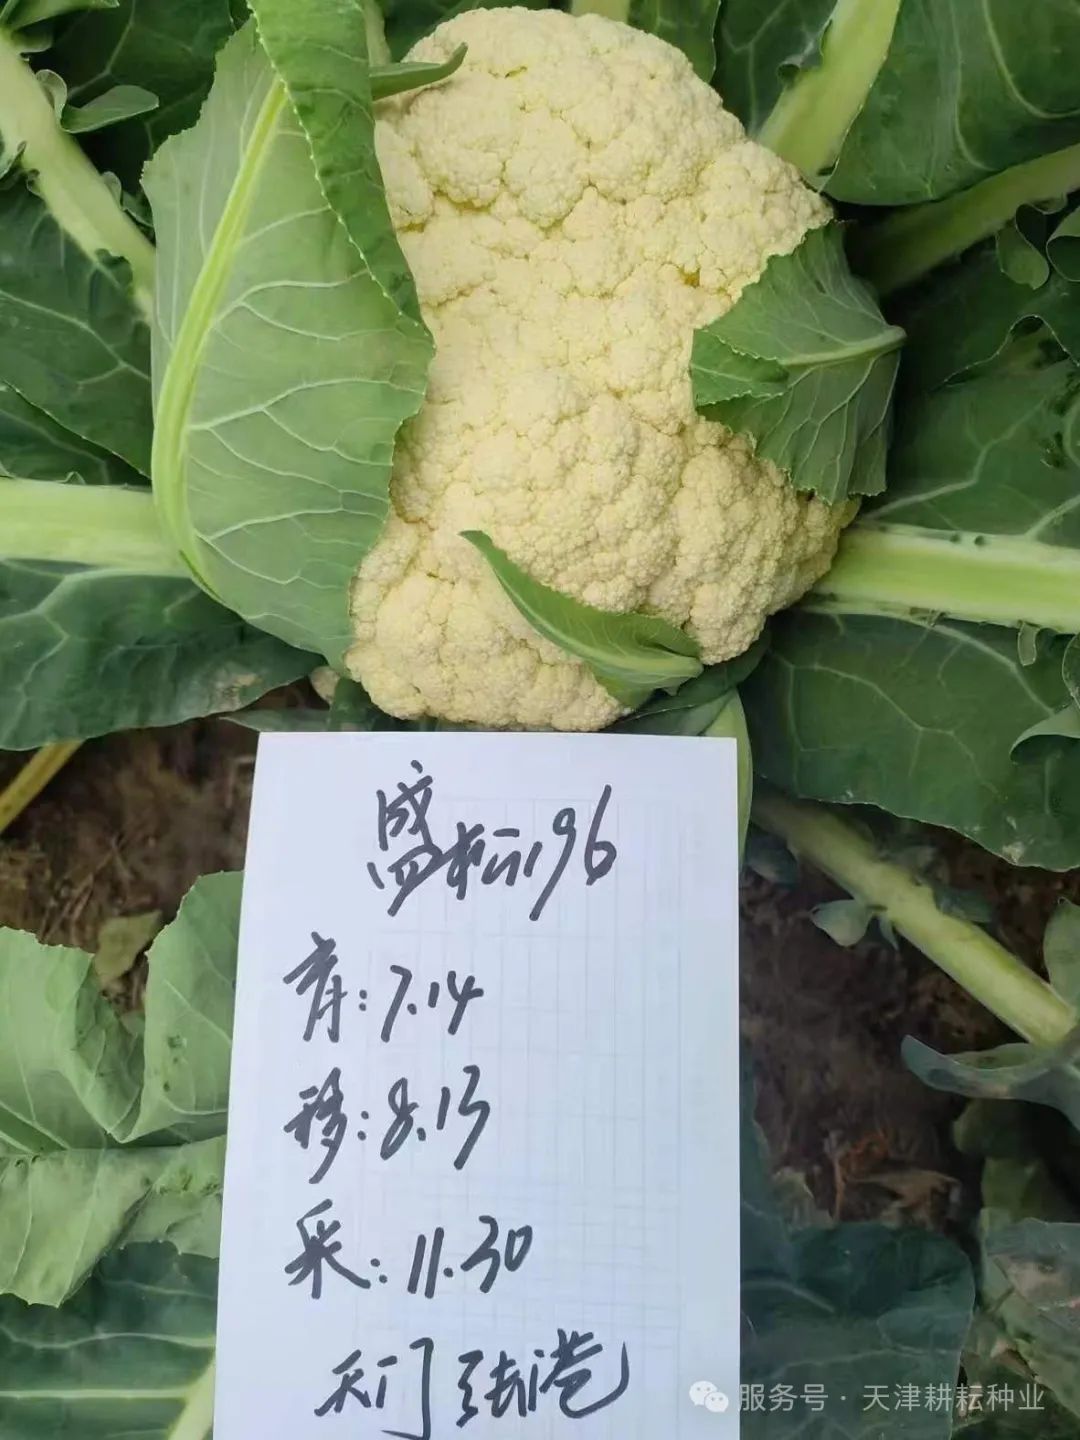 盛耘196
育:7.14
移:8.15
采:11.30
天门张港
服务号·天津耕耘种业